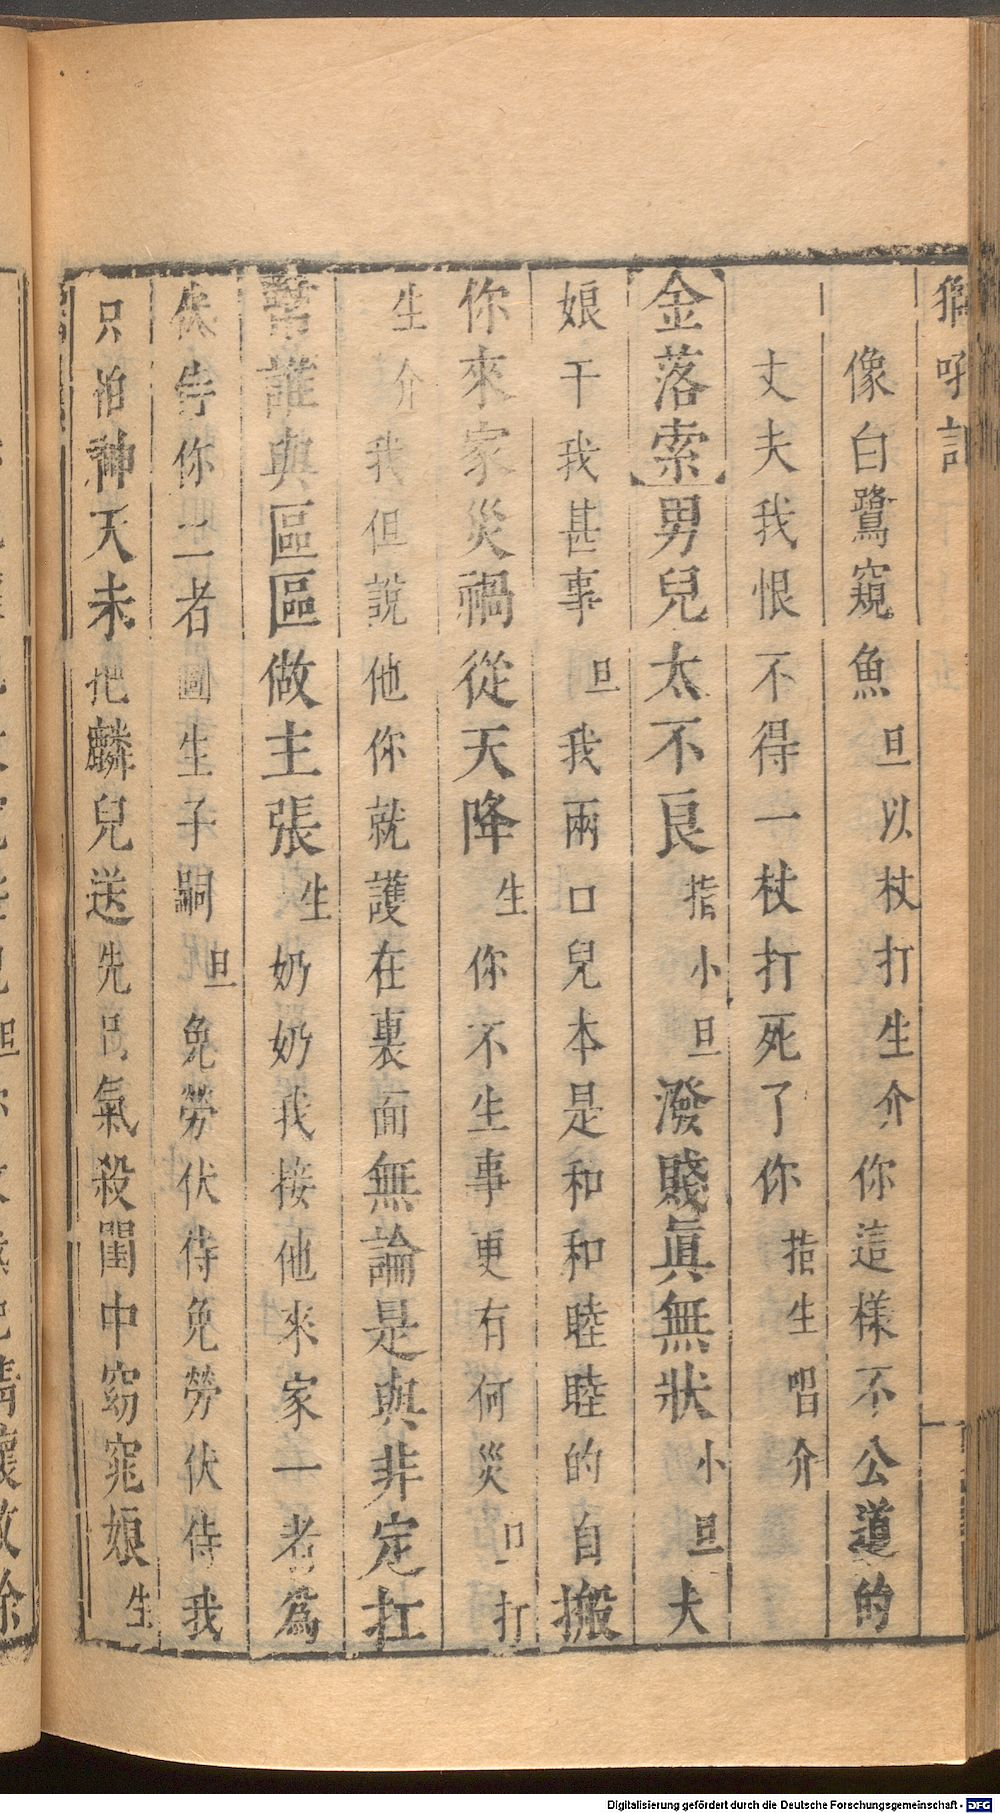 獅吼記
像白鷺窺魚旦以杖打生介你這樣不公道的
丈夫我恨不得一杖打死了你指生唱介
金落索男兒太不良指小旦潑賤眞無狀小旦大
娘干我甚事旦我兩口兒本是和和睦睦的自搬
你來家災禍從天降生你不生事更有何災旦打
生介我但說他你就護在裏面無論是與非定扛
幫誰與區區做主張生奶奶我接他來家一者爲
伏侍你二者圖生子嗣旦免勞伏侍免勞伏侍我
只怕神天未把麟兒送先氣殺閨中窈窕娘生
Digitalisierung gefördert durch die Deutsche Forschungsgemeinschaft - DFG